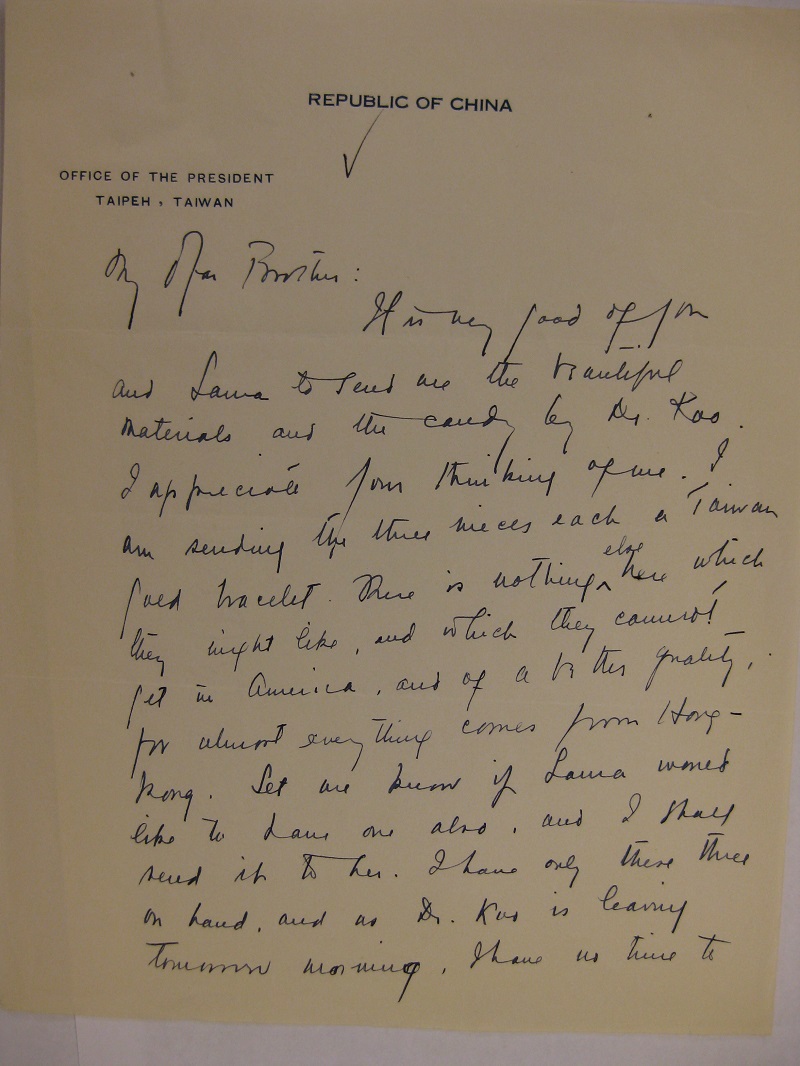 REPUBLIC OF CHINA
OFFICE OF THE PRESIDENT
TAIPEH, TAIWAN
My Dear Brother:
It is very good of you
and Laura to send me the beautiful
materials and the candy by Dr. Koo.
I appreciate your thinking of me. I
am sending the three nieces each a Taiwan
gold bracelet. There is nothing else here which
they might like, and which they cannot
get in America, and of a better quality,
for almost everything comes from Hong-
kong. Let me know if Laura would
like to have one also, and I shall
send it to her. I have only these three
on hand, and as Dr. Koo is leaving
tomorrow morning, I have no time to